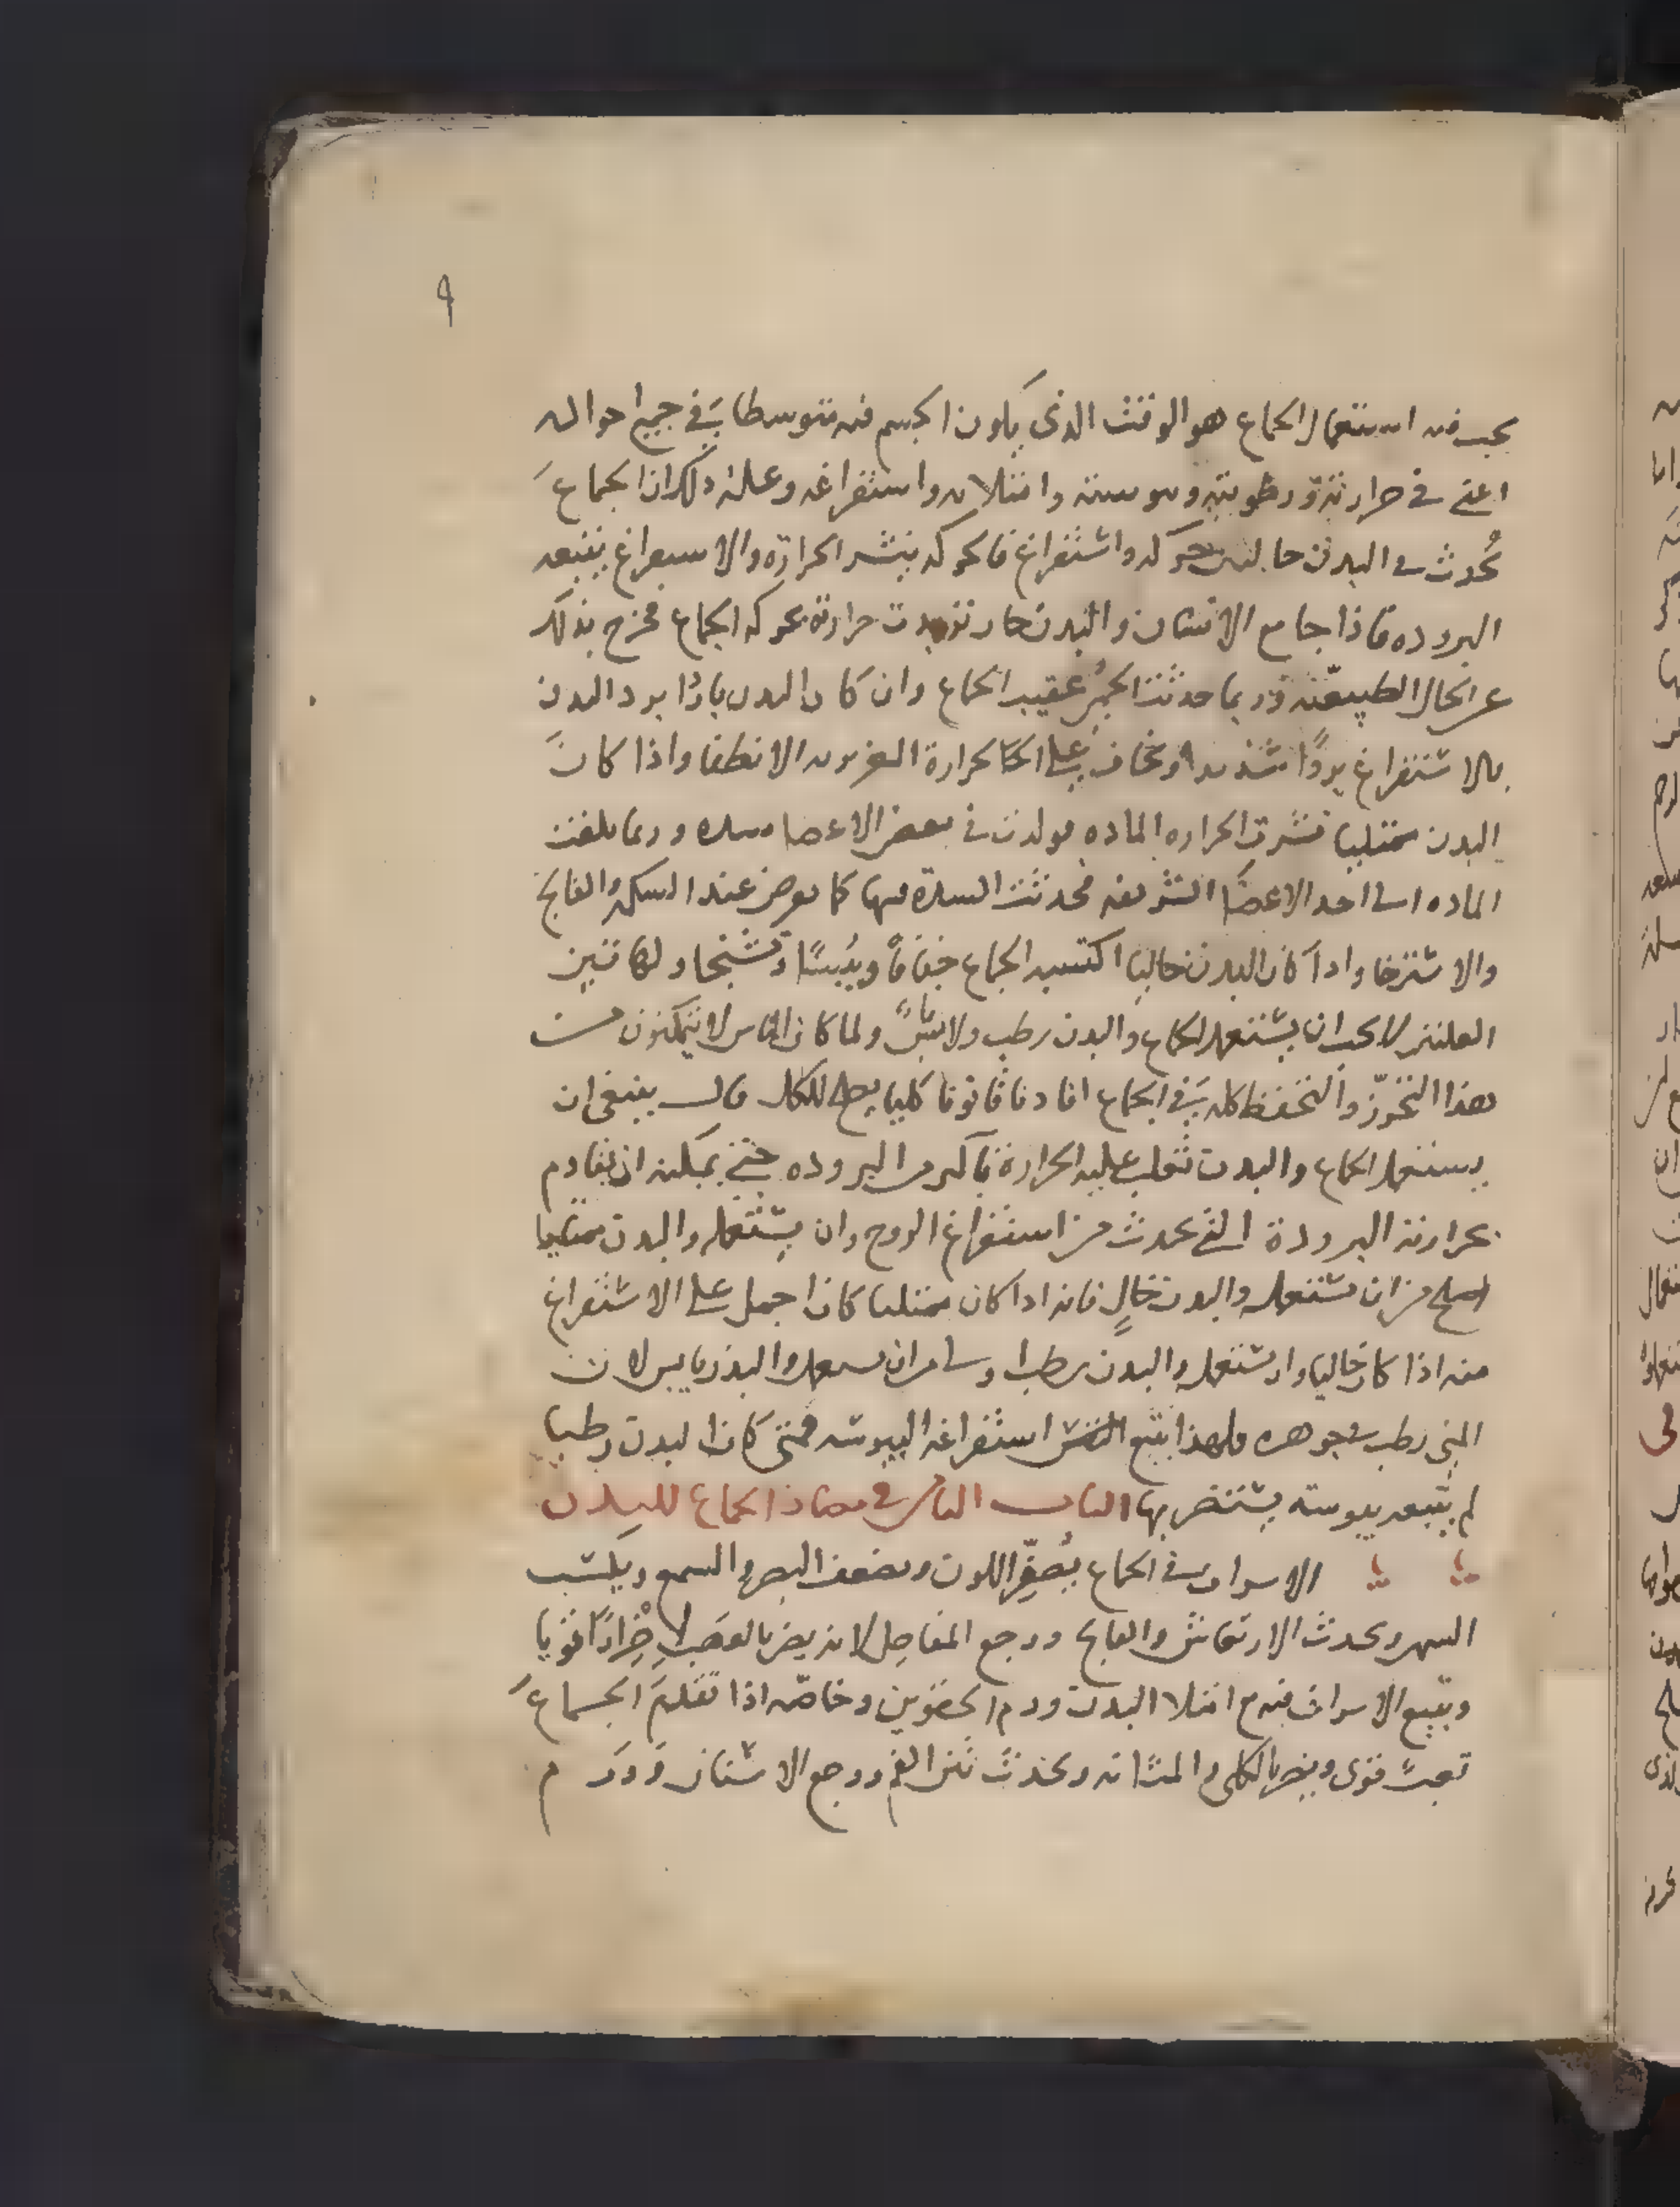 ٩
يجب فيه استعمال الجماع هو الوقت الذي يكون الجسم فيه متوسطا في جميع احواله
اعني في حرارته ورطوبته ويبوسته وامتلائه واستفراغه وعلة ذلك ان الجماع
يُحدث في البدن حالتين حركة واستفراغ فالحركة ينشر الحرارة والاستفراغ يتبعه
البرودة فاذا جامع الانسان والبدن حار تزيدت حرارته بحركة الجماع فخرج بذلك
عن الحال الطبيعية وربما حدثت الحمى عقيب الجماع وان كان البدن باردًا برد البدن
بالاستفراغ بردًا شديدا ويخاف على الحرارة الغريزية الانطفا واذا كان
البدن ممتليا نشرت الحرارة المادة فولدت في بعض الاعضا سدة وربما بلغت
المادة الى احد الاعضا الشريفة فحدثت السدة فيها كما يعرض عند السكتة والفالج
والاسترخا واذا كان البدن خاليا اكتسبه الجماع جفافًا ويُبسًا وتشنجا ولهاتين
العلتين لا يجب ان يستعمل الجماع والبدن رطب ولا يابسٌ ولما كان الناس لا يتمكنون من
هذا التحرّز والتحفظ كله في الجماع افادنا قانونا كليا يصلح للكل فقال ينبغي ان
يستعمل الجماع والبدن تغلب عليه الحرارة باكثر من البرودة حتى يمكنه ان يقاوم
بحرارته البرودة التي تحدث من استفراغ الروح وان يستعمله والبدن ممتليا
اصلح من ان يستعمله والبدن خالٍ فانه اذا كان ممتليا كان احمل على الاستفراغ
منه اذا كان خاليا وان يستعمله والبدن رطبا اولى من ان يستعمله والبدن يابس لان
المني رطب في جوهره فلهذا يتبع استفراغه اليبوسة فمتى كان البدن رطبا
لم يتبعه يبوسته يستضر بها الباب الثامن في مضار الجماع للبدن
الاسراف في الجماع يُصفّر اللون ويضعف البصر والسمع ويكسب
السهر ويحدث الارتعاش والفالج ووجع المفاصل لانه يضر بالعصب اضرارًا قويا
ويتبع الاسراف فيه مع امتلا البدن ورم الحضوين وخاصّة اذا تقدّم الجماعَ
تعبٌ قوى ويضر بالكلى والمثانة ويحدث نتن الفم ووجع الاسنان وورم